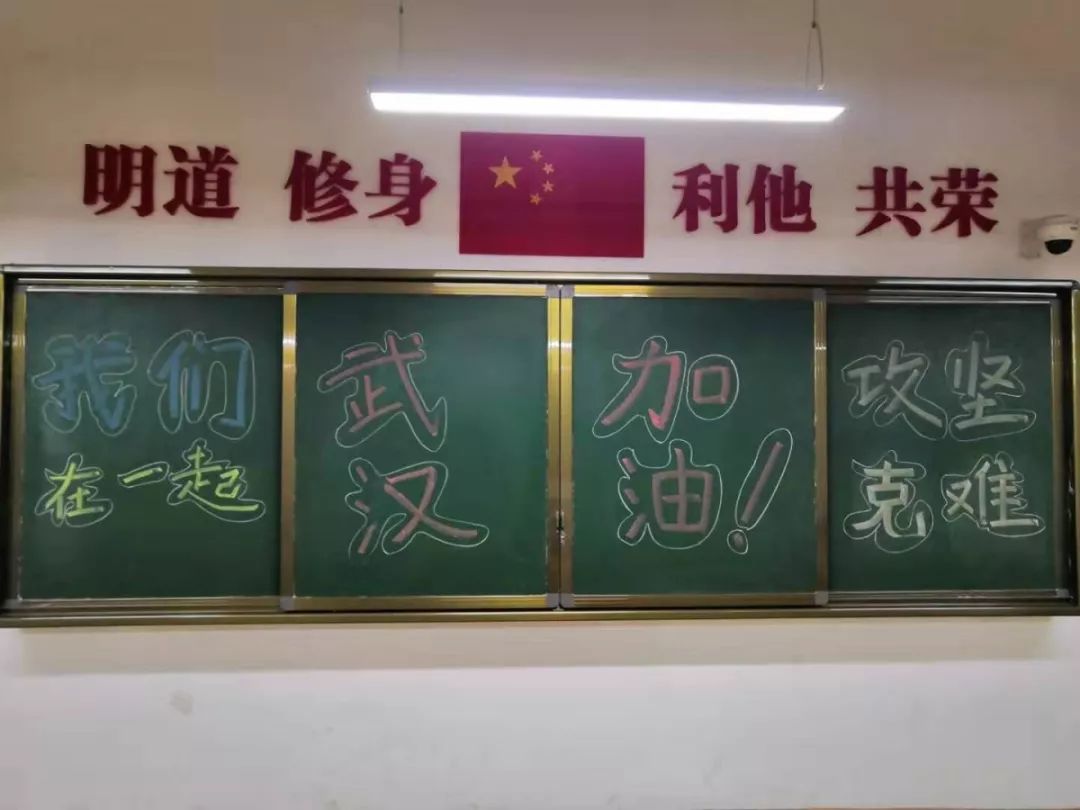 明道 修身 利他 共荣
我们
在一起
武
汉
加
油!
攻坚
克难